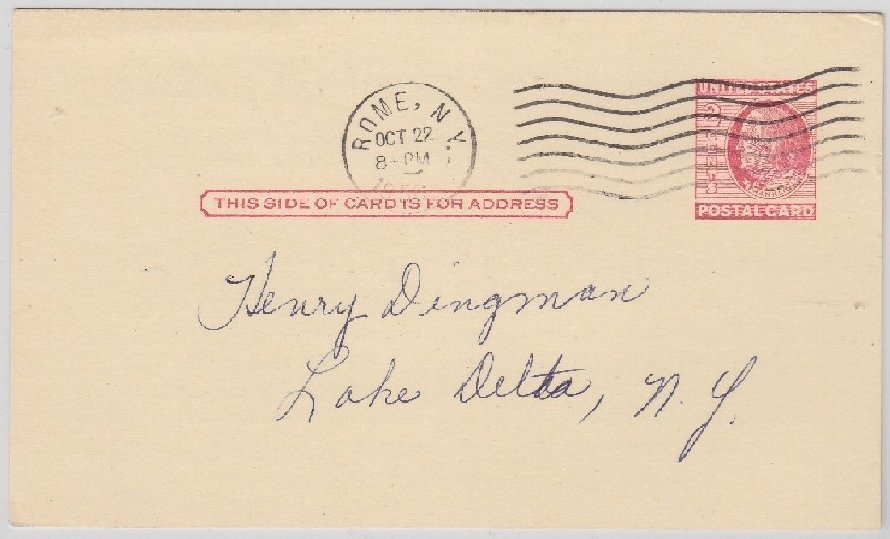 ROME, N.Y.
OCT 22
8-PM
UNITED STATES
POSTAL CARD
THIS SIDE OF CARD IS FOR ADDRESS
Henry Dingman
Lake Delta, N. Y.